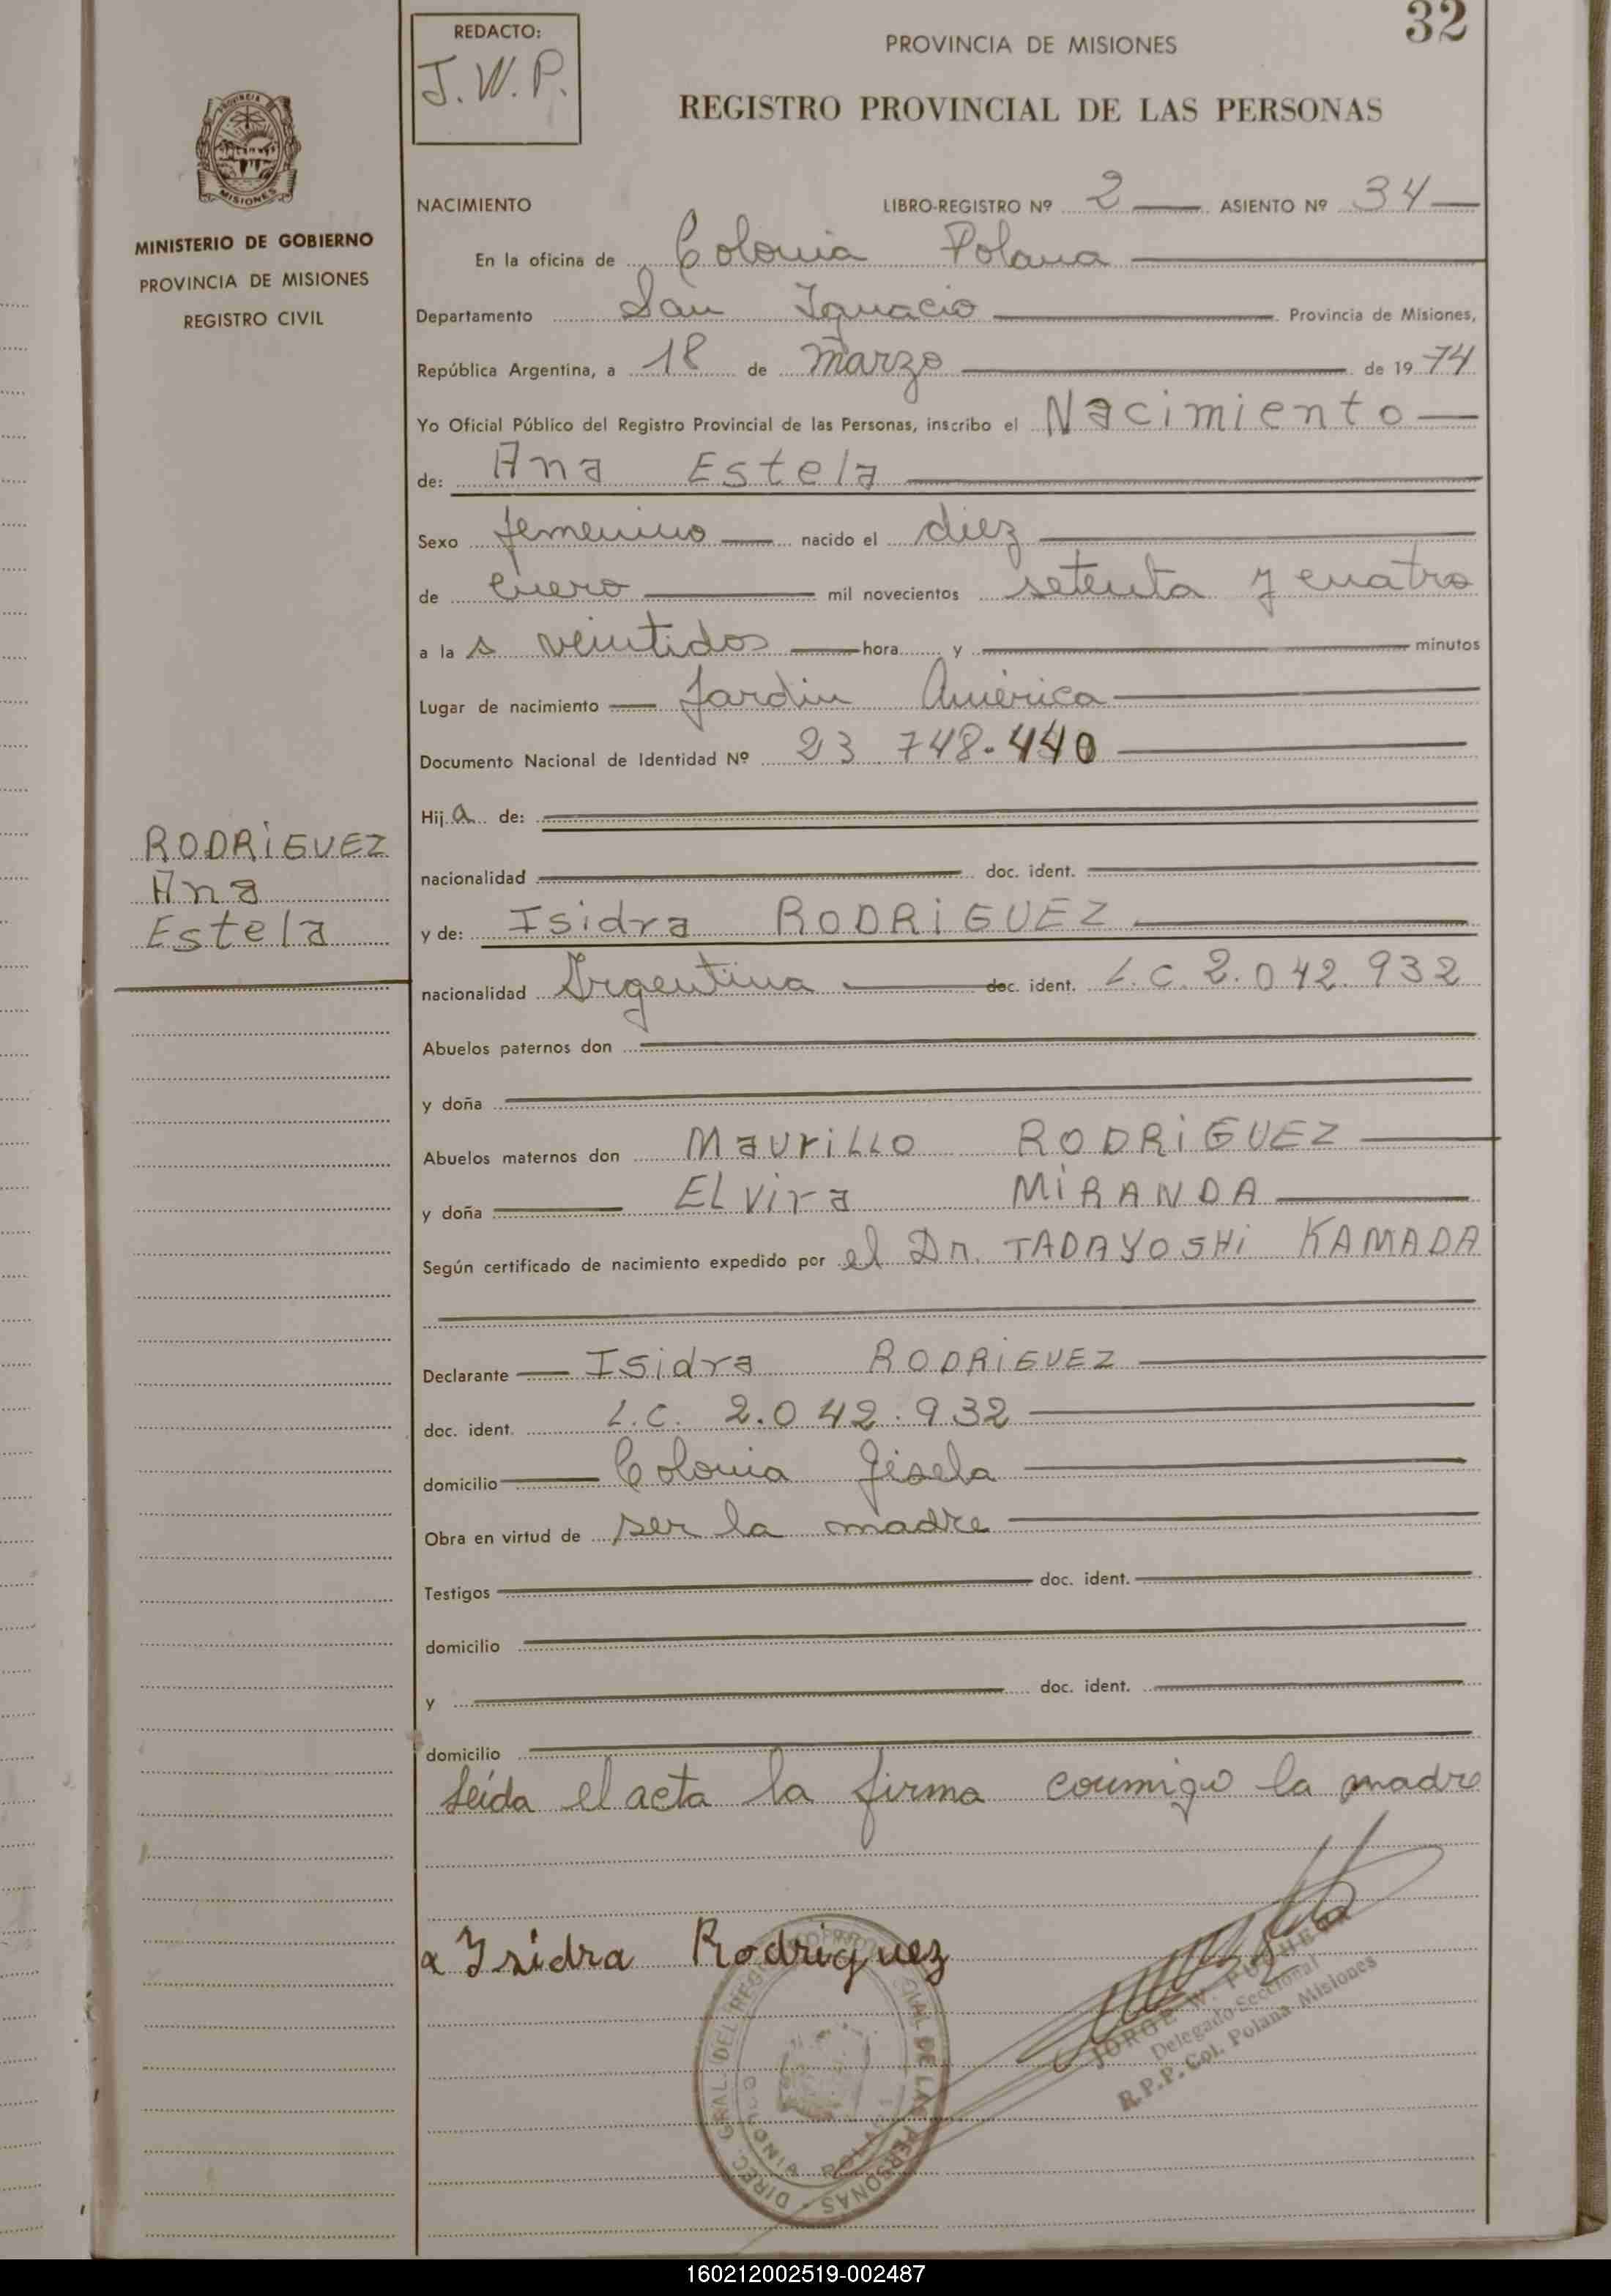 32
REDACTO:
J.W.P.
PROVINCIA DE MISIONES
REGISTRO PROVINCIAL DE LAS PERSONAS
PROVINCIA
MISIONES
MINISTERIO DE GOBIERNO
PROVINCIA DE MISIONES
REGISTRO CIVIL
NACIMIENTO LIBRO-REGISTRO Nº 2 ASIENTO Nº 34
En la oficina de Colonia Polana
Departamento San Ignacio Provincia de Misiones,
República Argentina, a 18 de marzo de 1974
Yo Oficial Público del Registro Provincial de las Personas, inscribo el Nacimiento
de: Ana Estela
Sexo femenino nacido el diez
de Enero mil novecientos setenta y cuatro
a la s veintidos hora y minutos
Lugar de nacimiento Jardin América
Documento Nacional de Identidad Nº 23.748.440
Hija de:
nacionalidad doc. ident.
RODRiGUEZ
Ana
Estela
y de: Isidra RODRiGUEZ
nacionalidad Argentina doc. ident. L.C. 2.042.932
Abuelos paternos don
y doña
Abuelos maternos don MauriLLo RODRiGUEZ
y doña ELvira MiRANDA
Según certificado de nacimiento expedido por el Dr. TADAYOSHi KAMADA
Declarante Isidra RODRiGUEZ
doc. ident. L.C. 2.042.932
domicilio Colonia Gisela
Obra en virtud de ser la madre
Testigos doc. ident.
domicilio
y doc. ident.
domicilio
Leida el acta la firma conmigo la madre
x Isidra Rodriguez
DIREC. GRAL. DEL REG. PROVINCIAL DE LAS PERSONAS
COLONIA POLANA
JORGE W.
Delegado Seccional
R.P.P. Col. Polana-Misiones
160212002519-002487